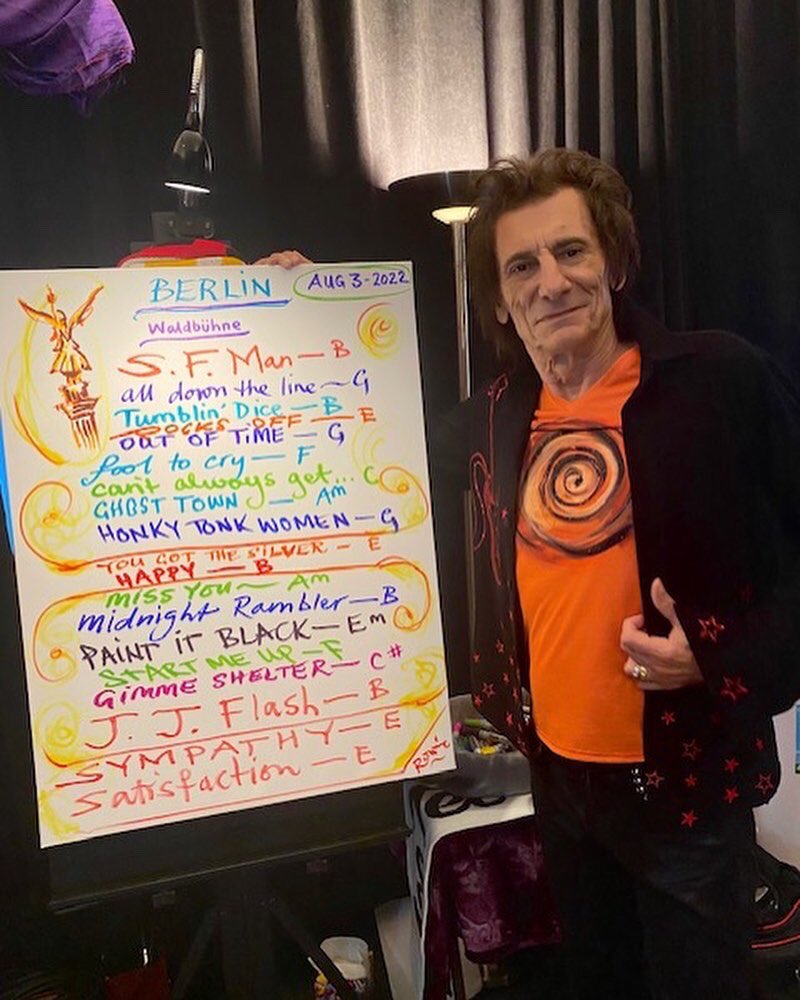 BERLIN
AUG 3-2022
Waldbühne
S.F. Man — B
all down the line — G
Tumblin' Dice — B
ROCKS OFF — E
OUT OF TiME — G
fool to cry — F
can't always get... C
GHOST TOWN — Am
HONKY TONK WOMEN — G
YOU GOT THE SILVER — E
HAPPY — B
MISS YOU — Am
Midnight Rambler — B
PAINT iT BLACK — Em
START ME UP — F
GiMME SHELTER — C#
J. J. Flash — B
SYMPATHY — E
Satisfaction — E